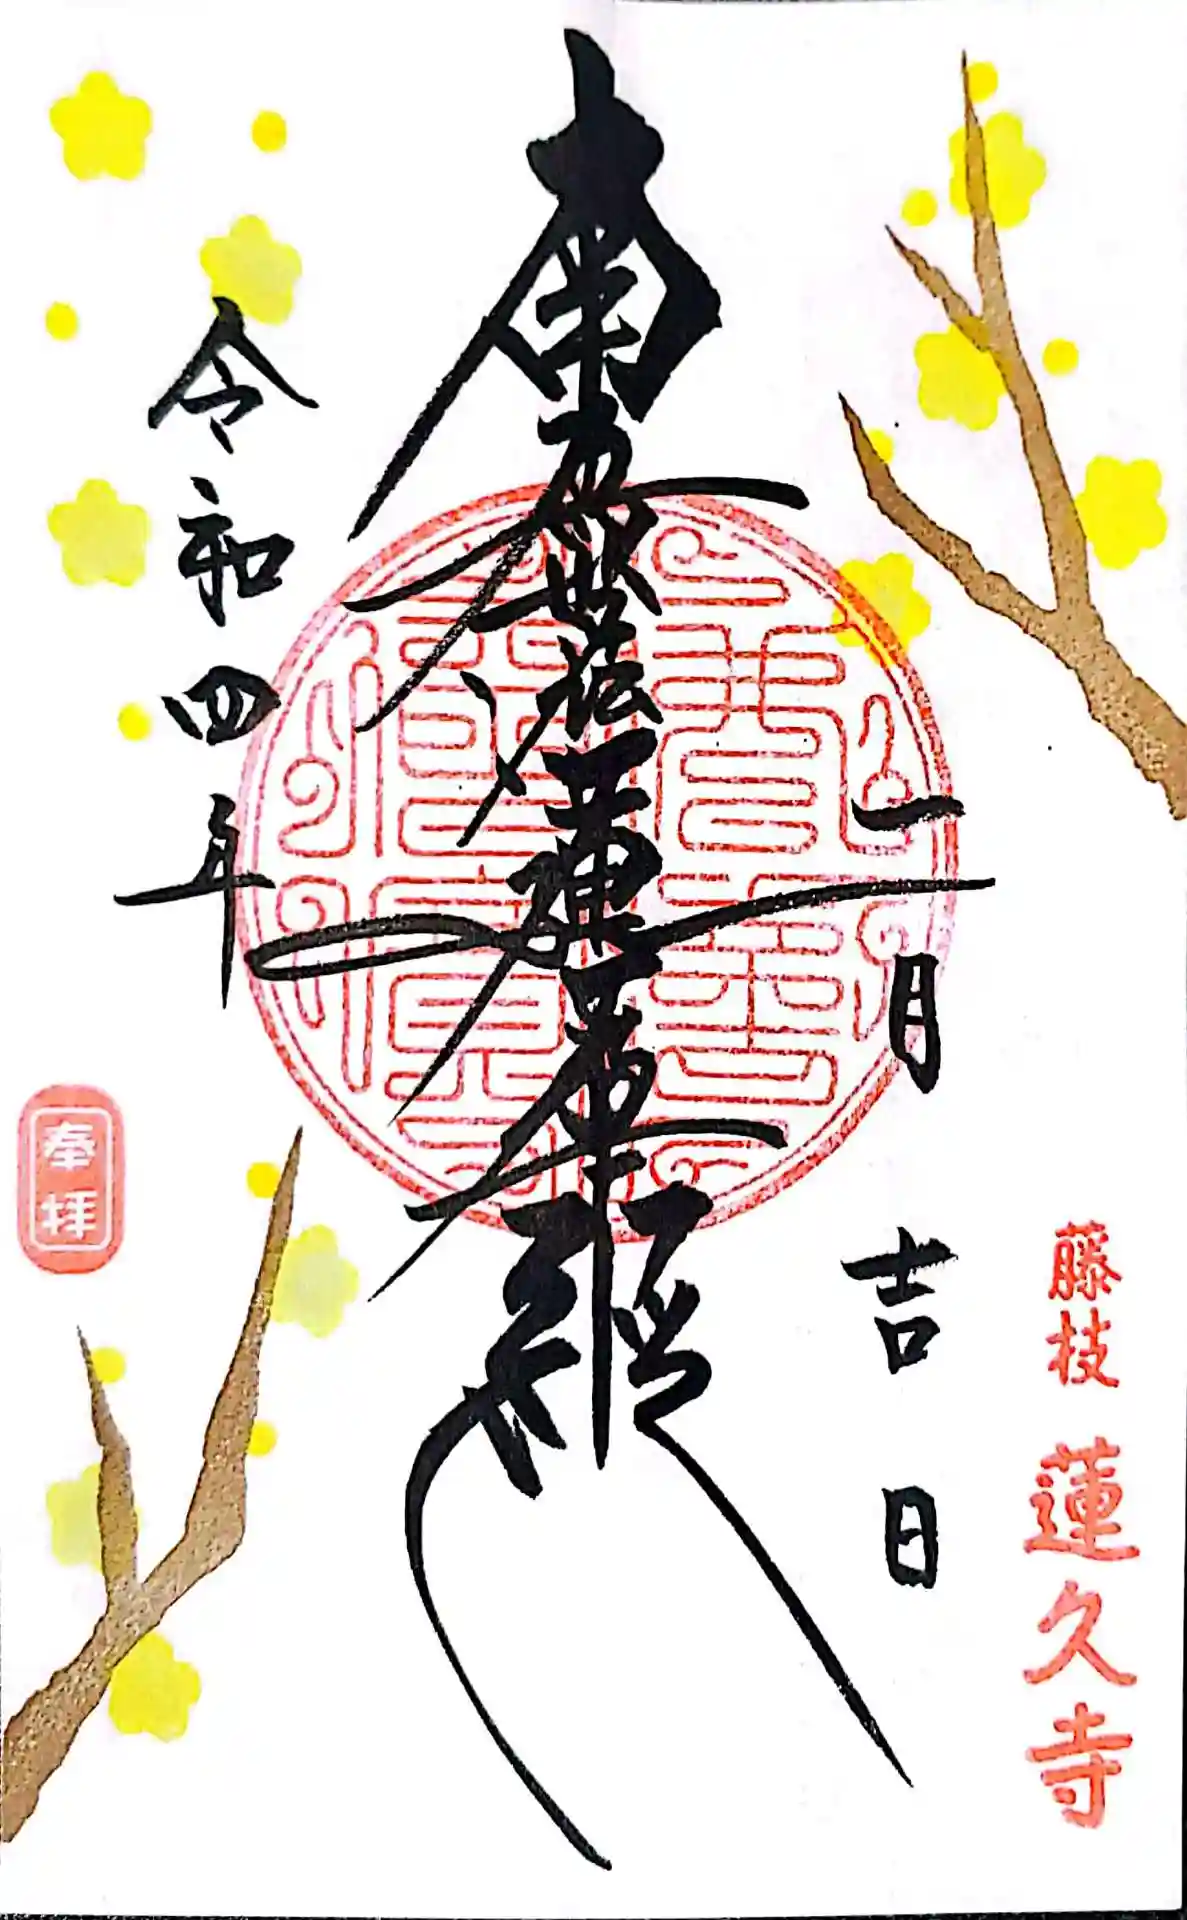 藤枝 蓮久寺
一月吉日
南無妙法蓮華経
令和四年
奉拝